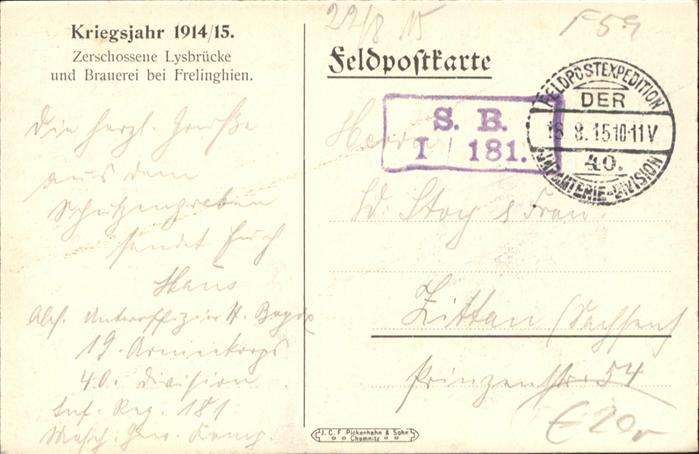 Kriegsjahr 1914/15.
Zerschossene Lysbrücke
und Brauerei bei Frelinghien.
Die herzl. Grüße
aus dem
Schützengraben
sendet Euch
Hans
19. Armeekorps
40. Division
Inf. Reg. 181
Masch. Gew. Komp.
29/8 15
F59
Feldpostkarte
FELDPOSTEXPEDITION
DER
8.15 10-11V
40.
INFANTERIE-DIVISION
S. B.
I 181.
Herrn
& Frau
Zittau (Sachsen)
Prinzenstr. 54
€20,-
J. C. F. Pickenhahn & Sohn
Chemnitz